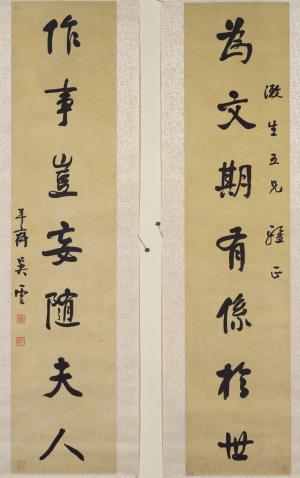 為文期有係於世
生五兄 正
作事豈妄隨夫人
平齋吳雲